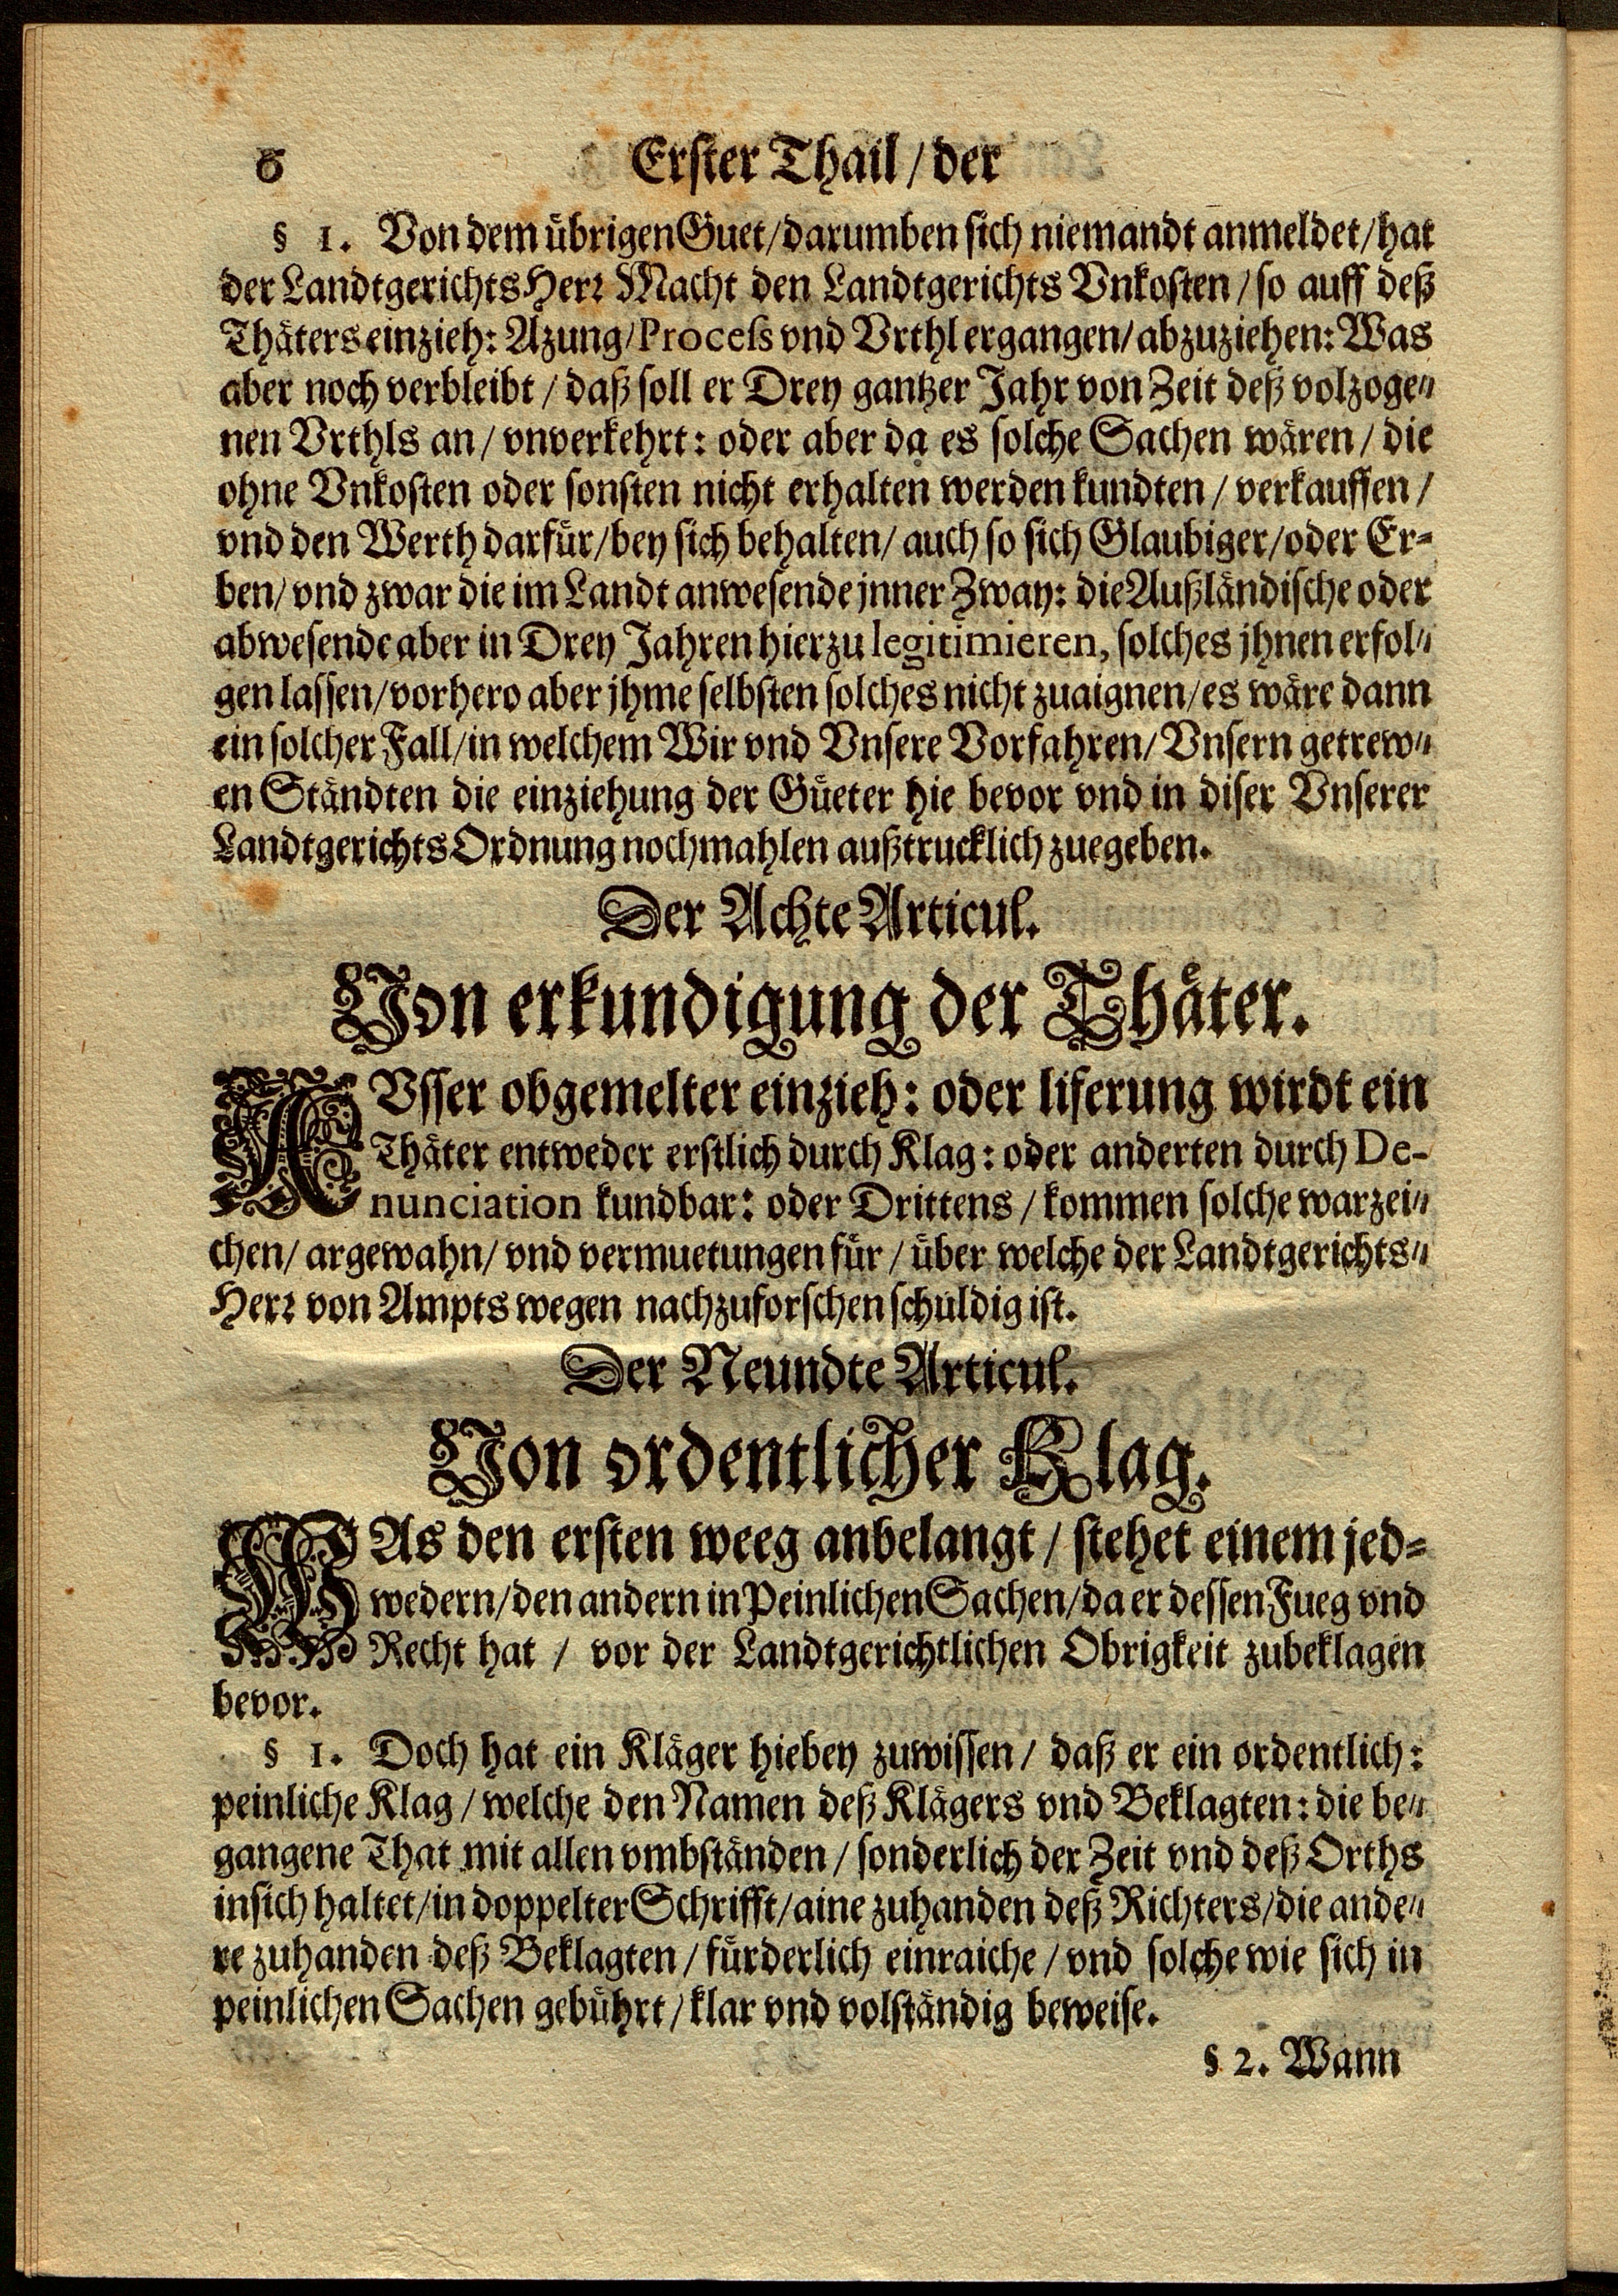 6 Erster Thail / der
§ 1. Von dem übrigen Guet / darumben sich niemandt anmeldet / hat
der Landtgerichts Herr Macht den Landtgerichts Vnkosten / so auff deß
Thäters einzieh: Azung / Process vnd Vrthl ergangen / abzuziehen: Was
aber noch verbleibt / daß soll er Drey gantzer Jahr von Zeit deß volzoge⸗
nen Vrthls an / vnverkehrt: oder aber da es solche Sachen wären / die
ohne Vnkosten oder sonsten nicht erhalten werden kundten / verkauffen /
vnd den Werth darfür / bey sich behalten / auch so sich Glaubiger / oder Er⸗
ben / vnd zwar die im Landt anwesende jnner Zway: die Außländische oder
abwesende aber in Drey Jahren hierzu legitimieren, solches jhnen erfol⸗
gen lassen / vorhero aber jhme selbsten solches nicht zuaignen / es wäre dann
ein solcher Fall / in welchem Wir vnd Vnsere Vorfahren / Vnsern getrew⸗
en Ständten die einziehung der Güeter hie bevor vnd in diser Vnserer
Landtgerichts Ordnung nochmahlen außtrucklich zuegeben.
Der Achte Articul.
Von erkundigung der Thäter.
AVsser obgemelter einzieh: oder liferung wirdt ein
Thäter entweder erstlich durch Klag: oder anderten durch De-
nunciation kundbar: oder Drittens / kommen solche warzei⸗
chen / argewahn / vnd vermuetungen für / über welche der Landtgerichts⸗
Herr von Ampts wegen nachzuforschen schuldig ist.
Der Neundte Articul.
Von ordentlicher Klag.
WAs den ersten weeg anbelangt / stehet einem jed⸗
wedern / den andern in Peinlichen Sachen / da er dessen Fueg vnd
Recht hat / vor der Landtgerichtlichen Obrigkeit zubeklagen
bevor.
§ 1. Doch hat ein Kläger hiebey zuwissen / daß er ein ordentlich:
peinliche Klag / welche den Namen deß Klägers vnd Beklagten: die be⸗
gangene That mit allen vmbständen / sonderlich der Zeit vnd deß Orths
insich haltet / in doppelter Schrifft / aine zuhanden deß Richters / die ande⸗
re zuhanden deß Beklagten / fürderlich einraiche / vnd solche wie sich in
peinlichen Sachen gebührt / klar vnd volständig beweise.
§ 2. Wann